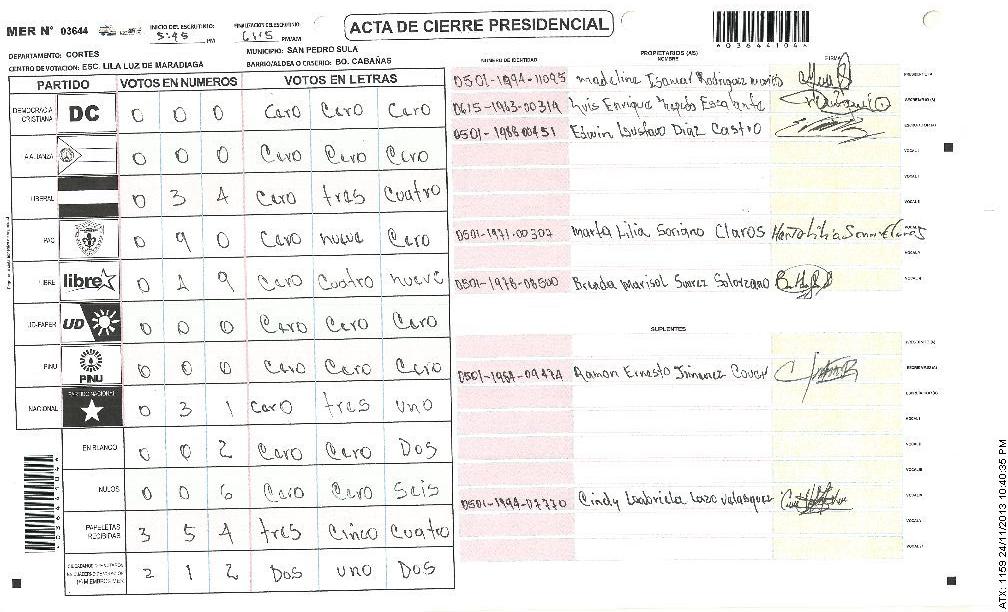 MER N° 03644
INICIO DEL ESCRUTINIO: 5:45 PM
FINALIZACION ESCRUTINIO 6:15 PM/AM
ACTA DE CIERRE PRESIDENCIAL
DEPARTAMENTO: CORTES
MUNICIPIO: SAN PEDRO SULA
CENTRO DE VOTACION: ESC. LILA LUZ DE MARADIAGA
BARRIO/ALDEA O CASERIO: BO. CABAÑAS
PARTIDO VOTOS EN NUMEROS VOTOS EN LETRAS
DEMOCRACIA CRISTIANA DC 0 0 0 Cero Cero Cero
ALIANZA 0 0 0 Cero Cero Cero
LIBERAL 0 3 4 Cero tres Cuatro
PAC 0 9 0 Cero nueve Cero
LIBRE libre 0 4 9 Cero Cuatro nueve
UD-FAPER UD 0 0 0 Cero Cero Cero
PINU PINU 0 0 0 Cero Cero Cero
NACIONAL PARTIDO NACIONAL 0 3 1 Cero tres uno
EN BLANCO 0 0 2 Cero Cero Dos
NULOS 0 0 6 Cero Cero Seis
PAPELETAS RECIBIDAS 3 5 4 tres Cinco Cuatro
2 1 2 Dos uno Dos
PROPIETARIOS (AS)
NUMERO DE IDENTIDAD NOMBRE FIRMA
0501-1994-11095 Madeline Isamar Rodriguez
0615-1963-00319 Luis Enrique
0501-1988-00451 Edwin Gustavo Diaz Castro
0501-1971-00307 Marta Lilia Soriano Claros
0501-1978-08500 Brenda Marisol Suarez Solorzano
SUPLENTES
0501-1984-09474 Ramon Ernesto Jimenez
0501-1994-07770 Cindy Gabriela Lazo Velasquez
ATX: 1159 24/11/2013 10:40:35 PM